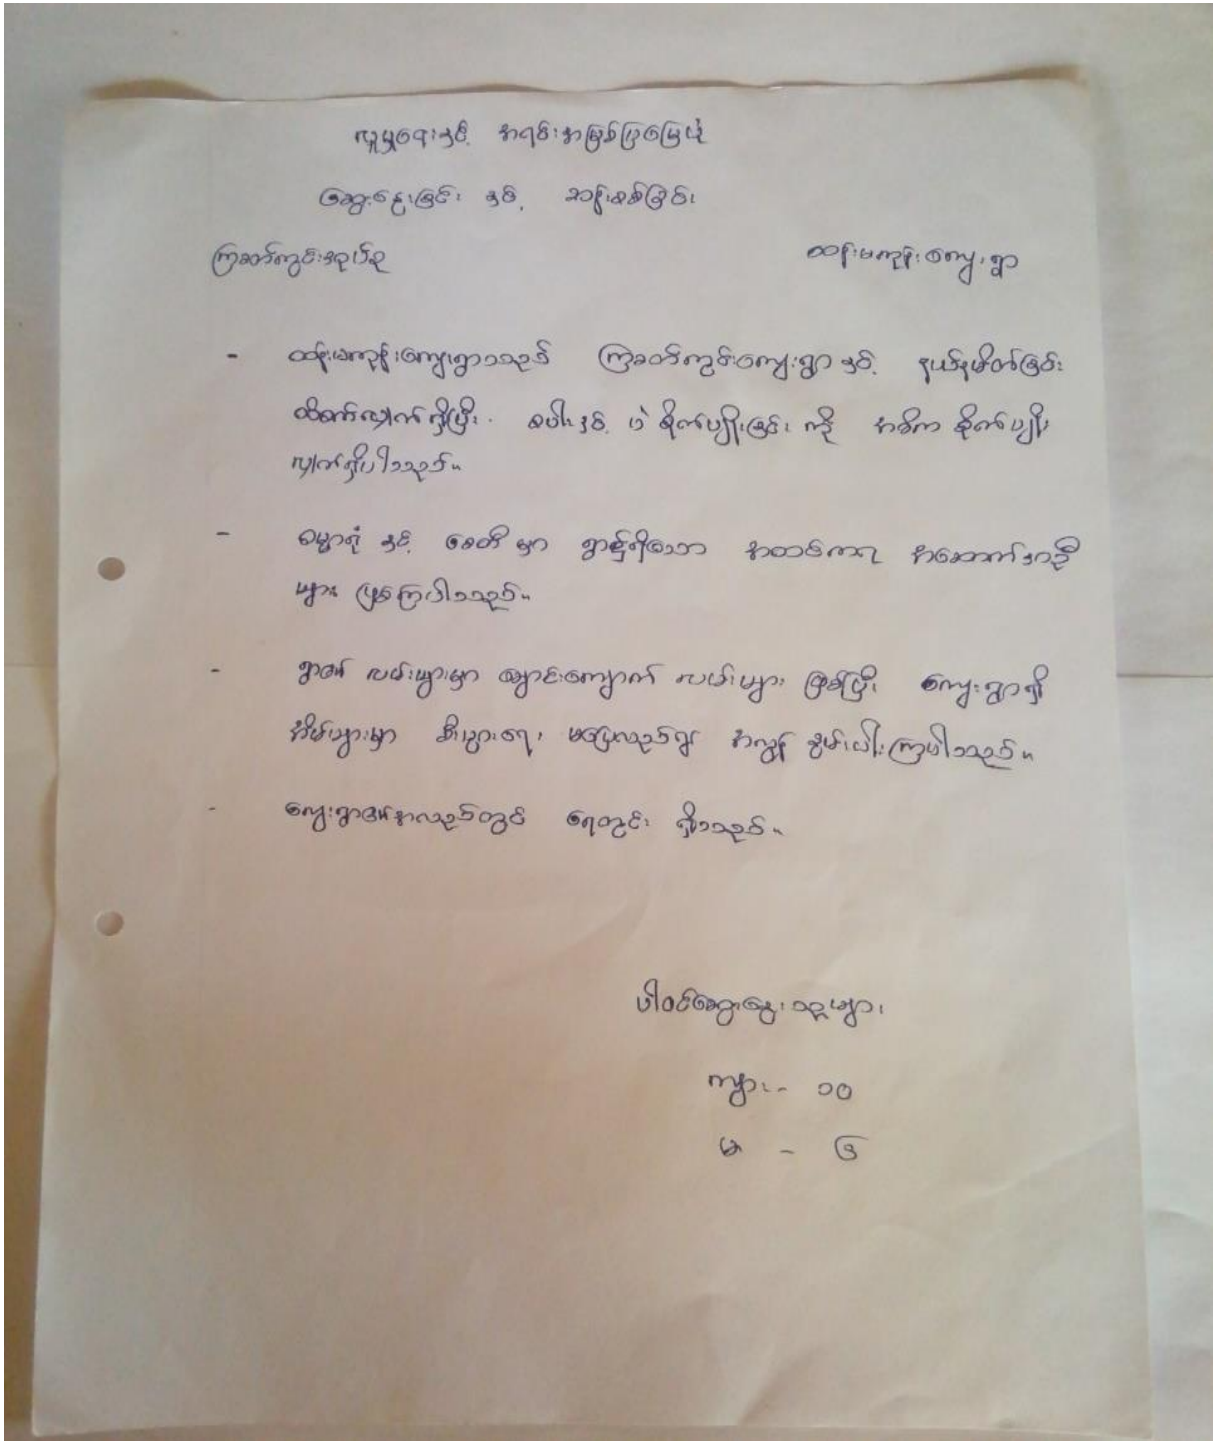 လူမှုရေးနှင့် အရင်းအမြစ်ပြမြေပုံ
ဆွေးနွေးခြင်း နှင့် ဆန်းစစ်ခြင်း
ကြခတ်ကွင်းအုပ်စု ထန်းမကုန်းကျေးရွာ
- ထန်းမကုန်းကျေးရွာသည် ကြခတ်ကွင်းကျေးရွာ နှင့် နယ်နမိတ်ခြင်း
ထိစက်လျှက်ရှိပြီး စပါးနှင့် ပဲ စိုက်ပျိုးခြင်း ကို အဓိက စိုက်ပျိုး
လျှက်ရှိပါသည်။
- ဓမ္မာရုံ နှင့် စေတီ မှာ ရွာ၌ရှိသော အထင်ကရ အဆောက်အဦ
များ ဖြစ်ကြပါသည်။
- ရွာ၏ လမ်းများမှာ ချောင်းကျောက် လမ်းများ ဖြစ်ပြီး ကျေးရွာရှိ
အိမ်များမှာ စီးပွားရေး မပြေလည်၍ အလွန် နွမ်းပါးကြပါသည်။
- ကျေးရွာ၏အလည်တွင် ရေတွင်း ရှိသည်။
ပါဝင်ဆွေးနွေးသူများ
ကျား - ၁၀
မ - ဩ